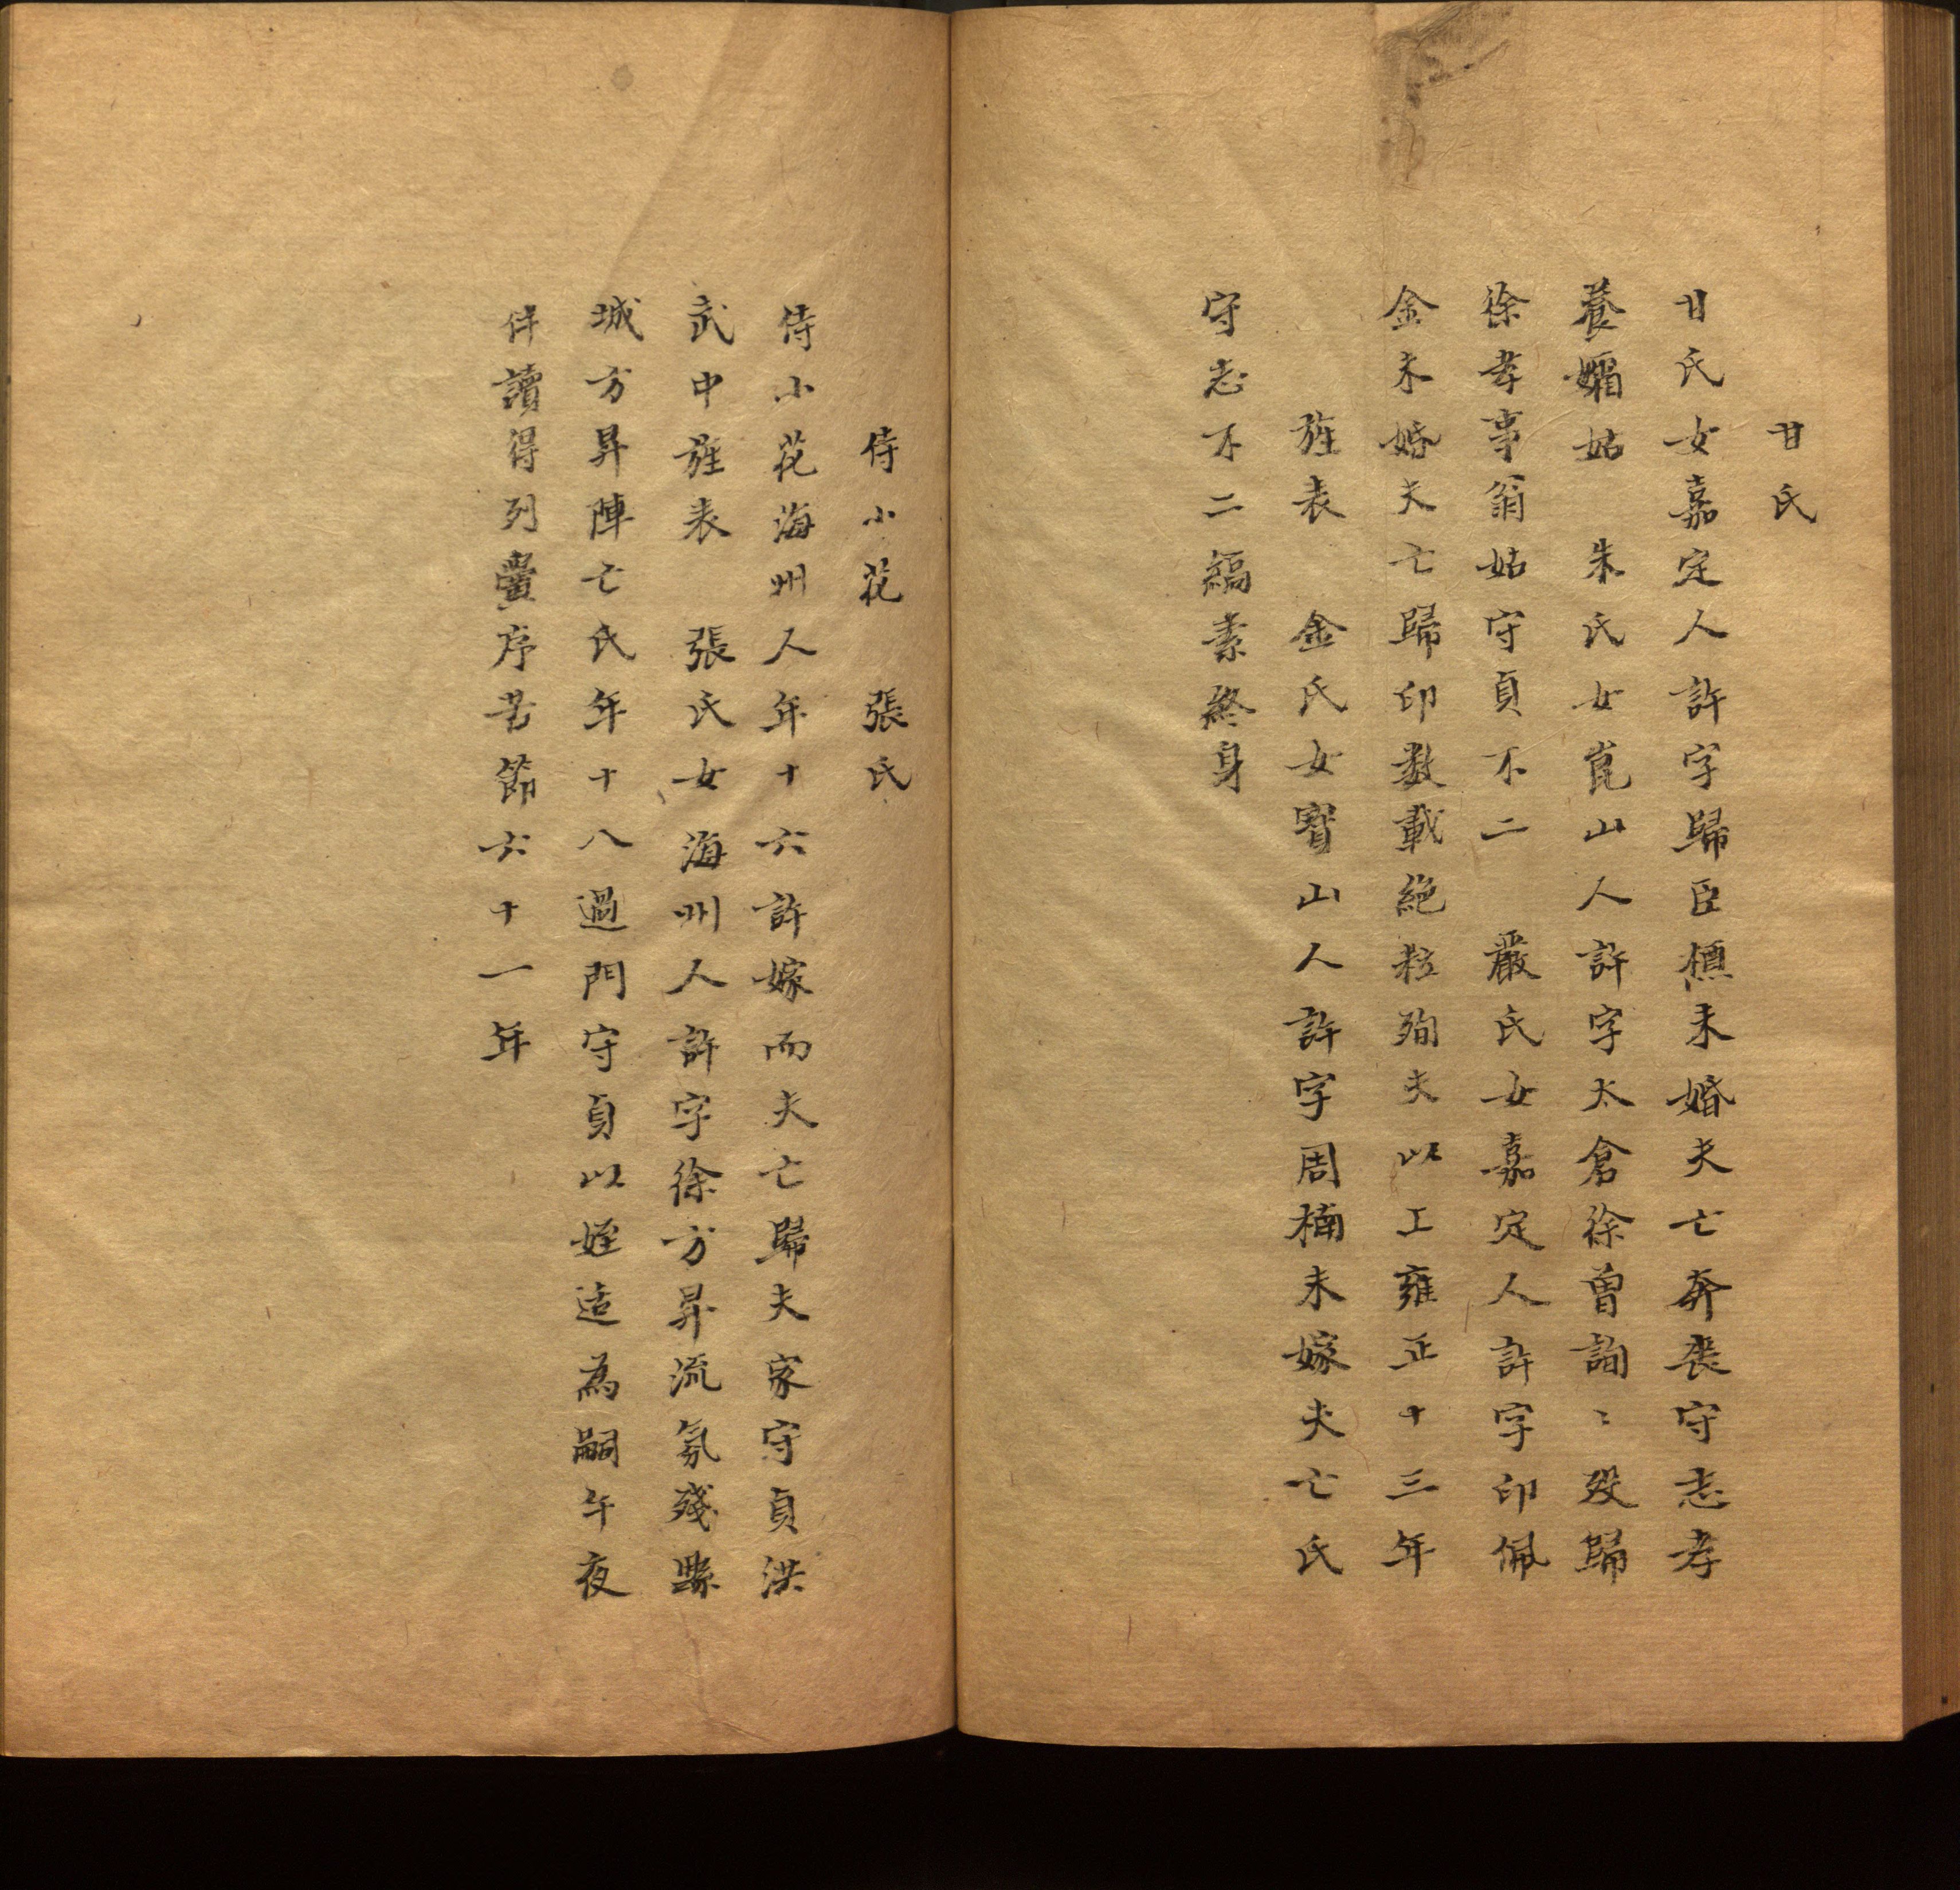 甘氏
甘氏女嘉定人許字歸臣慎未婚夫亡奔喪守志孝
養孀姑　朱氏女崑山人許字太倉徐曾詢〻歿歸
徐孝事翁姑守貞不二　嚴氏女嘉定人許字印佩
金未婚夫亡歸印数載絶粒殉夫以上雍正十三年
旌表　金氏女寶山人許字周楠未嫁夫亡氏
守志不二縞素終身
侍小花　張氏
侍小花海州人年十六許嫁而夫亡歸夫家守貞洪
武中旌表　張氏女海州人許字徐方昇流氛殘縣
城方昇陣亡氏年十八過門守貞以姪适為嗣午夜
伴讀得列黌序苦節六十一年